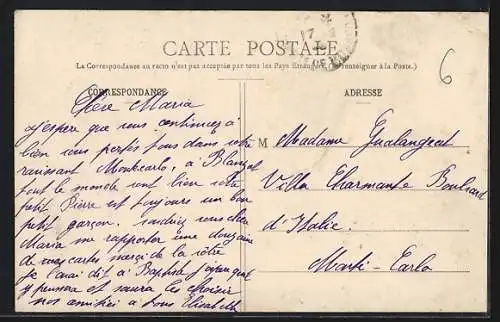 CARTE POSTALE
La Correspondance au recto n'est pas acceptée par tous les Pays Étrangers. (Se renseigner à la Poste.)
CORRESPONDANCE
ADRESSE
6
Chère Maria
j'espère que vous continuez à
bien vous porter tous dans votre
ravissant Montecarlo, à
tout le monde va bien votre
petit Pierre est toujours un bon
petit garçon. voudriez vous chère
Maria me rapporter une douzaine
de vos cartes merci de la vôtre
je l'avai dit à Baptiste j'espère qu'il
y pensera et saura les choisir
nos amitiés à tous Elisabeth
M Madame
Villa Charmante Boulevard
d'Italie.
Monte-Carlo